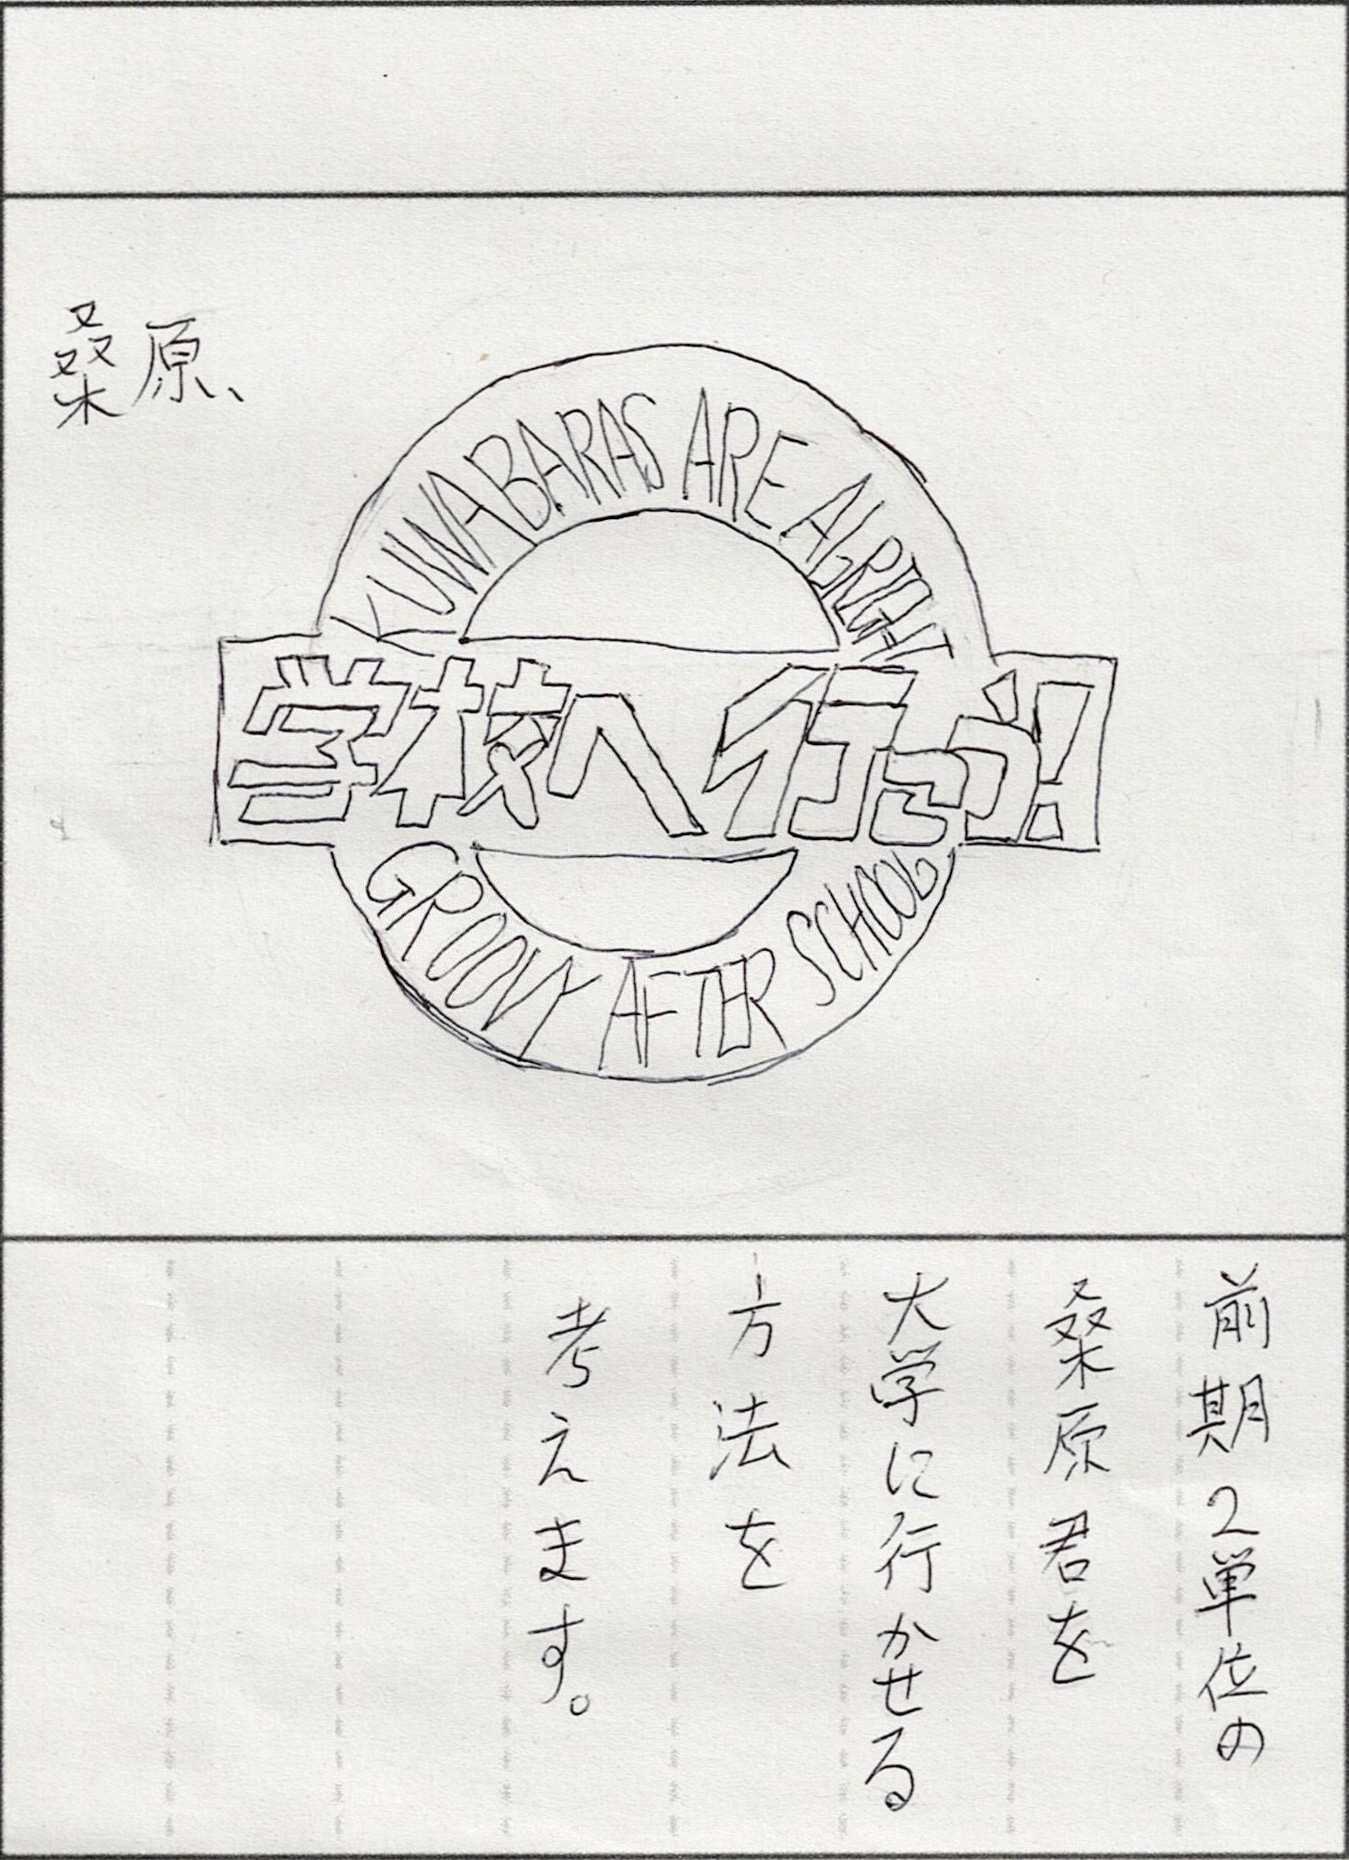 桑原、
KUWABARAS ARE ALRIGHT
学校へ行こう!
GROOVY AFTER SCHOOL
前期2単位の
桑原君を
大学に行かせる
方法を
考えます。